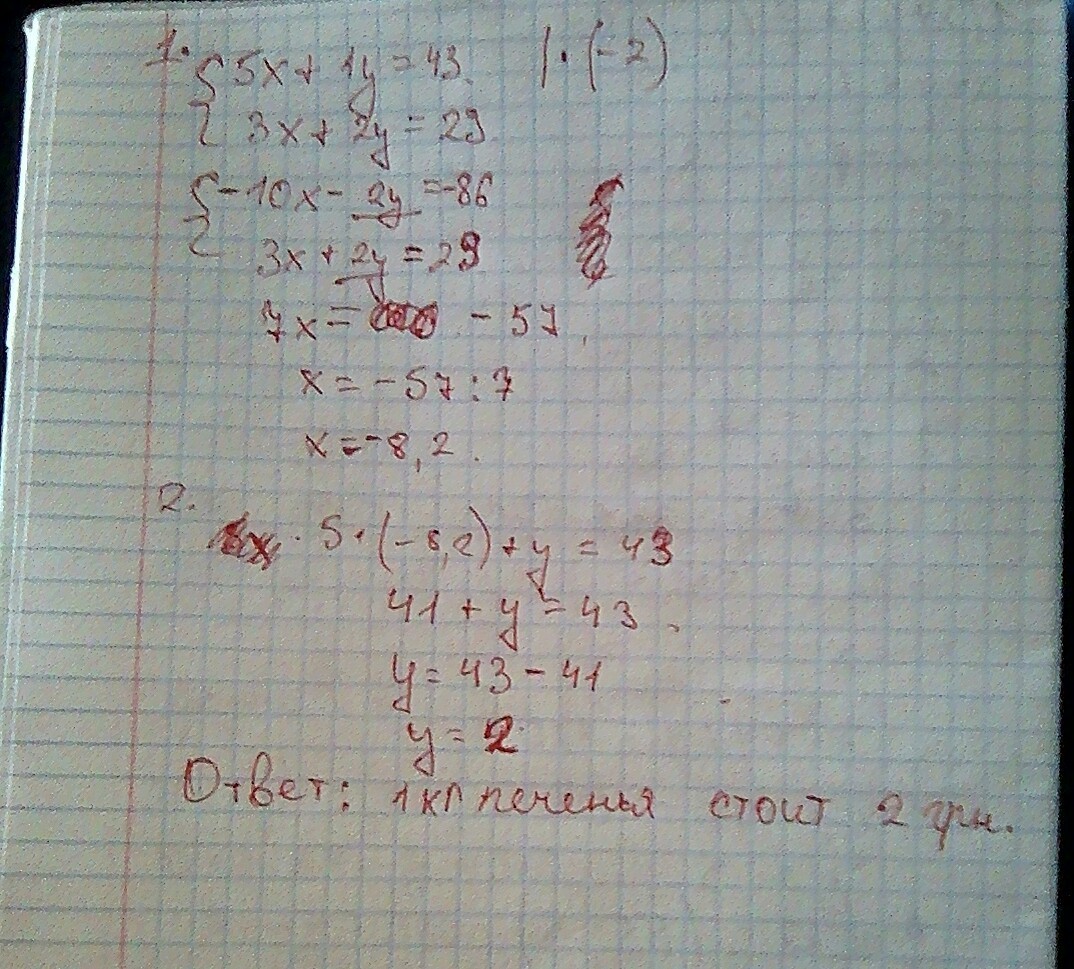 1.
{ 5x + 1y = 43 | · (-2)
3x + 2y = 29
{ -10x - 2y = -86
3x + 2y = 29
7x = - 57
x = -57 : 7
x = -8,2.
2.
5 · (-8,2) + y = 43
41 + y = 43
y = 43 - 41
y = 2
Ответ: 1 кг печенья стоит 2 грн.